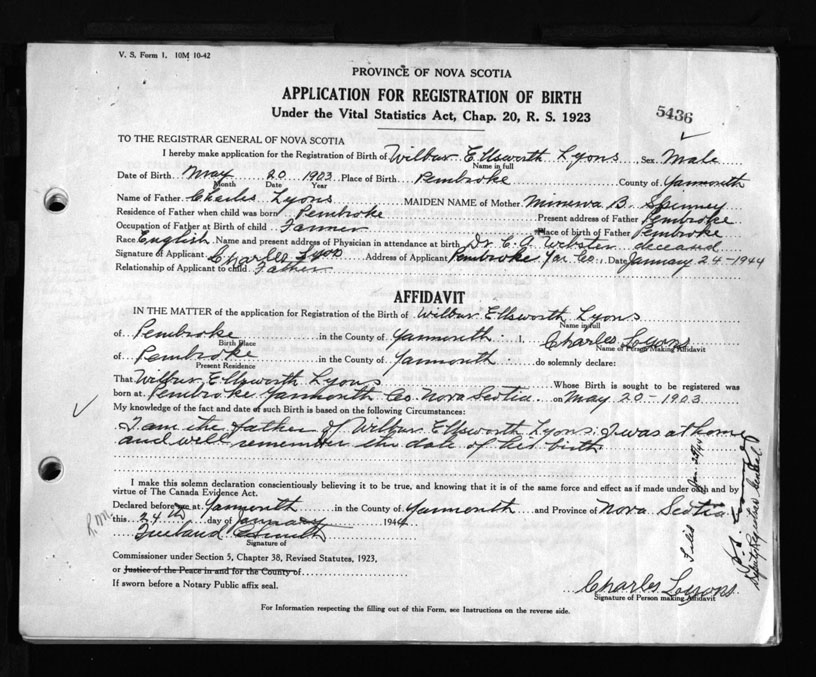 V. S. Form 1. 10M 10-42
PROVINCE OF NOVA SCOTIA
APPLICATION FOR REGISTRATION OF BIRTH
5436
Under the Vital Statistics Act, Chap. 20, R. S. 1923
TO THE REGISTRAR GENERAL OF NOVA SCOTIA
I hereby make application for the Registration of Birth of Wilbur Ellsworth Lyons, Sex Male
Name in full
Date of Birth May 20 1903 Place of Birth Pembroke County of Yarmouth
Month Date Year
Name of Father Charles Lyons MAIDEN NAME of Mother Minerva B. Spinney
Residence of Father when child was born Pembroke Present address of Father Pembroke
Occupation of Father at Birth of child Farmer Place of birth of Father Pembroke
Race English Name and present address of Physician in attendance at birth Dr. C. A. Webster deceased
Signature of Applicant Charles Lyons Address of Applicant Pembroke Yar Co., Date January 24-1944
Relationship of Applicant to child Father
AFFIDAVIT
IN THE MATTER of the application for Registration of the Birth of Wilbur Ellsworth Lyons
Name in full
of Pembroke in the County of Yarmouth I, Charles Lyons
Birth Place Name of Person Making Affidavit
of Pembroke in the County of Yarmouth do solemnly declare:
Present Residence
That Wilbur Ellsworth Lyons Whose Birth is sought to be registered was
born at Pembroke Yarmouth Co. Nova Scotia on May 20-1903
My knowledge of the fact and date of such Birth is based on the following Circumstances:
I am the father of Wilbur Ellsworth Lyons. I was at home
and well remember the date of his birth.
I make this solemn declaration conscientiously believing it to be true, and knowing that it is of the same force and effect as if made under oath and by
virtue of The Canada Evidence Act.
Declared before me at Yarmouth in the County of Yarmouth and Province of Nova Scotia
this 24th day of January 1944
Signature of
Commissioner under Section 5, Chapter 38, Revised Statutes, 1923,
or Justice of the Peace in and for the County of
If sworn before a Notary Public affix seal.
Charles Lyons
Signature of Person making Affidavit
For Information respecting the filling out of this Form, see Instructions on the reverse side.
R.M.
Filed Jan. 29/44
Deputy Registrar General